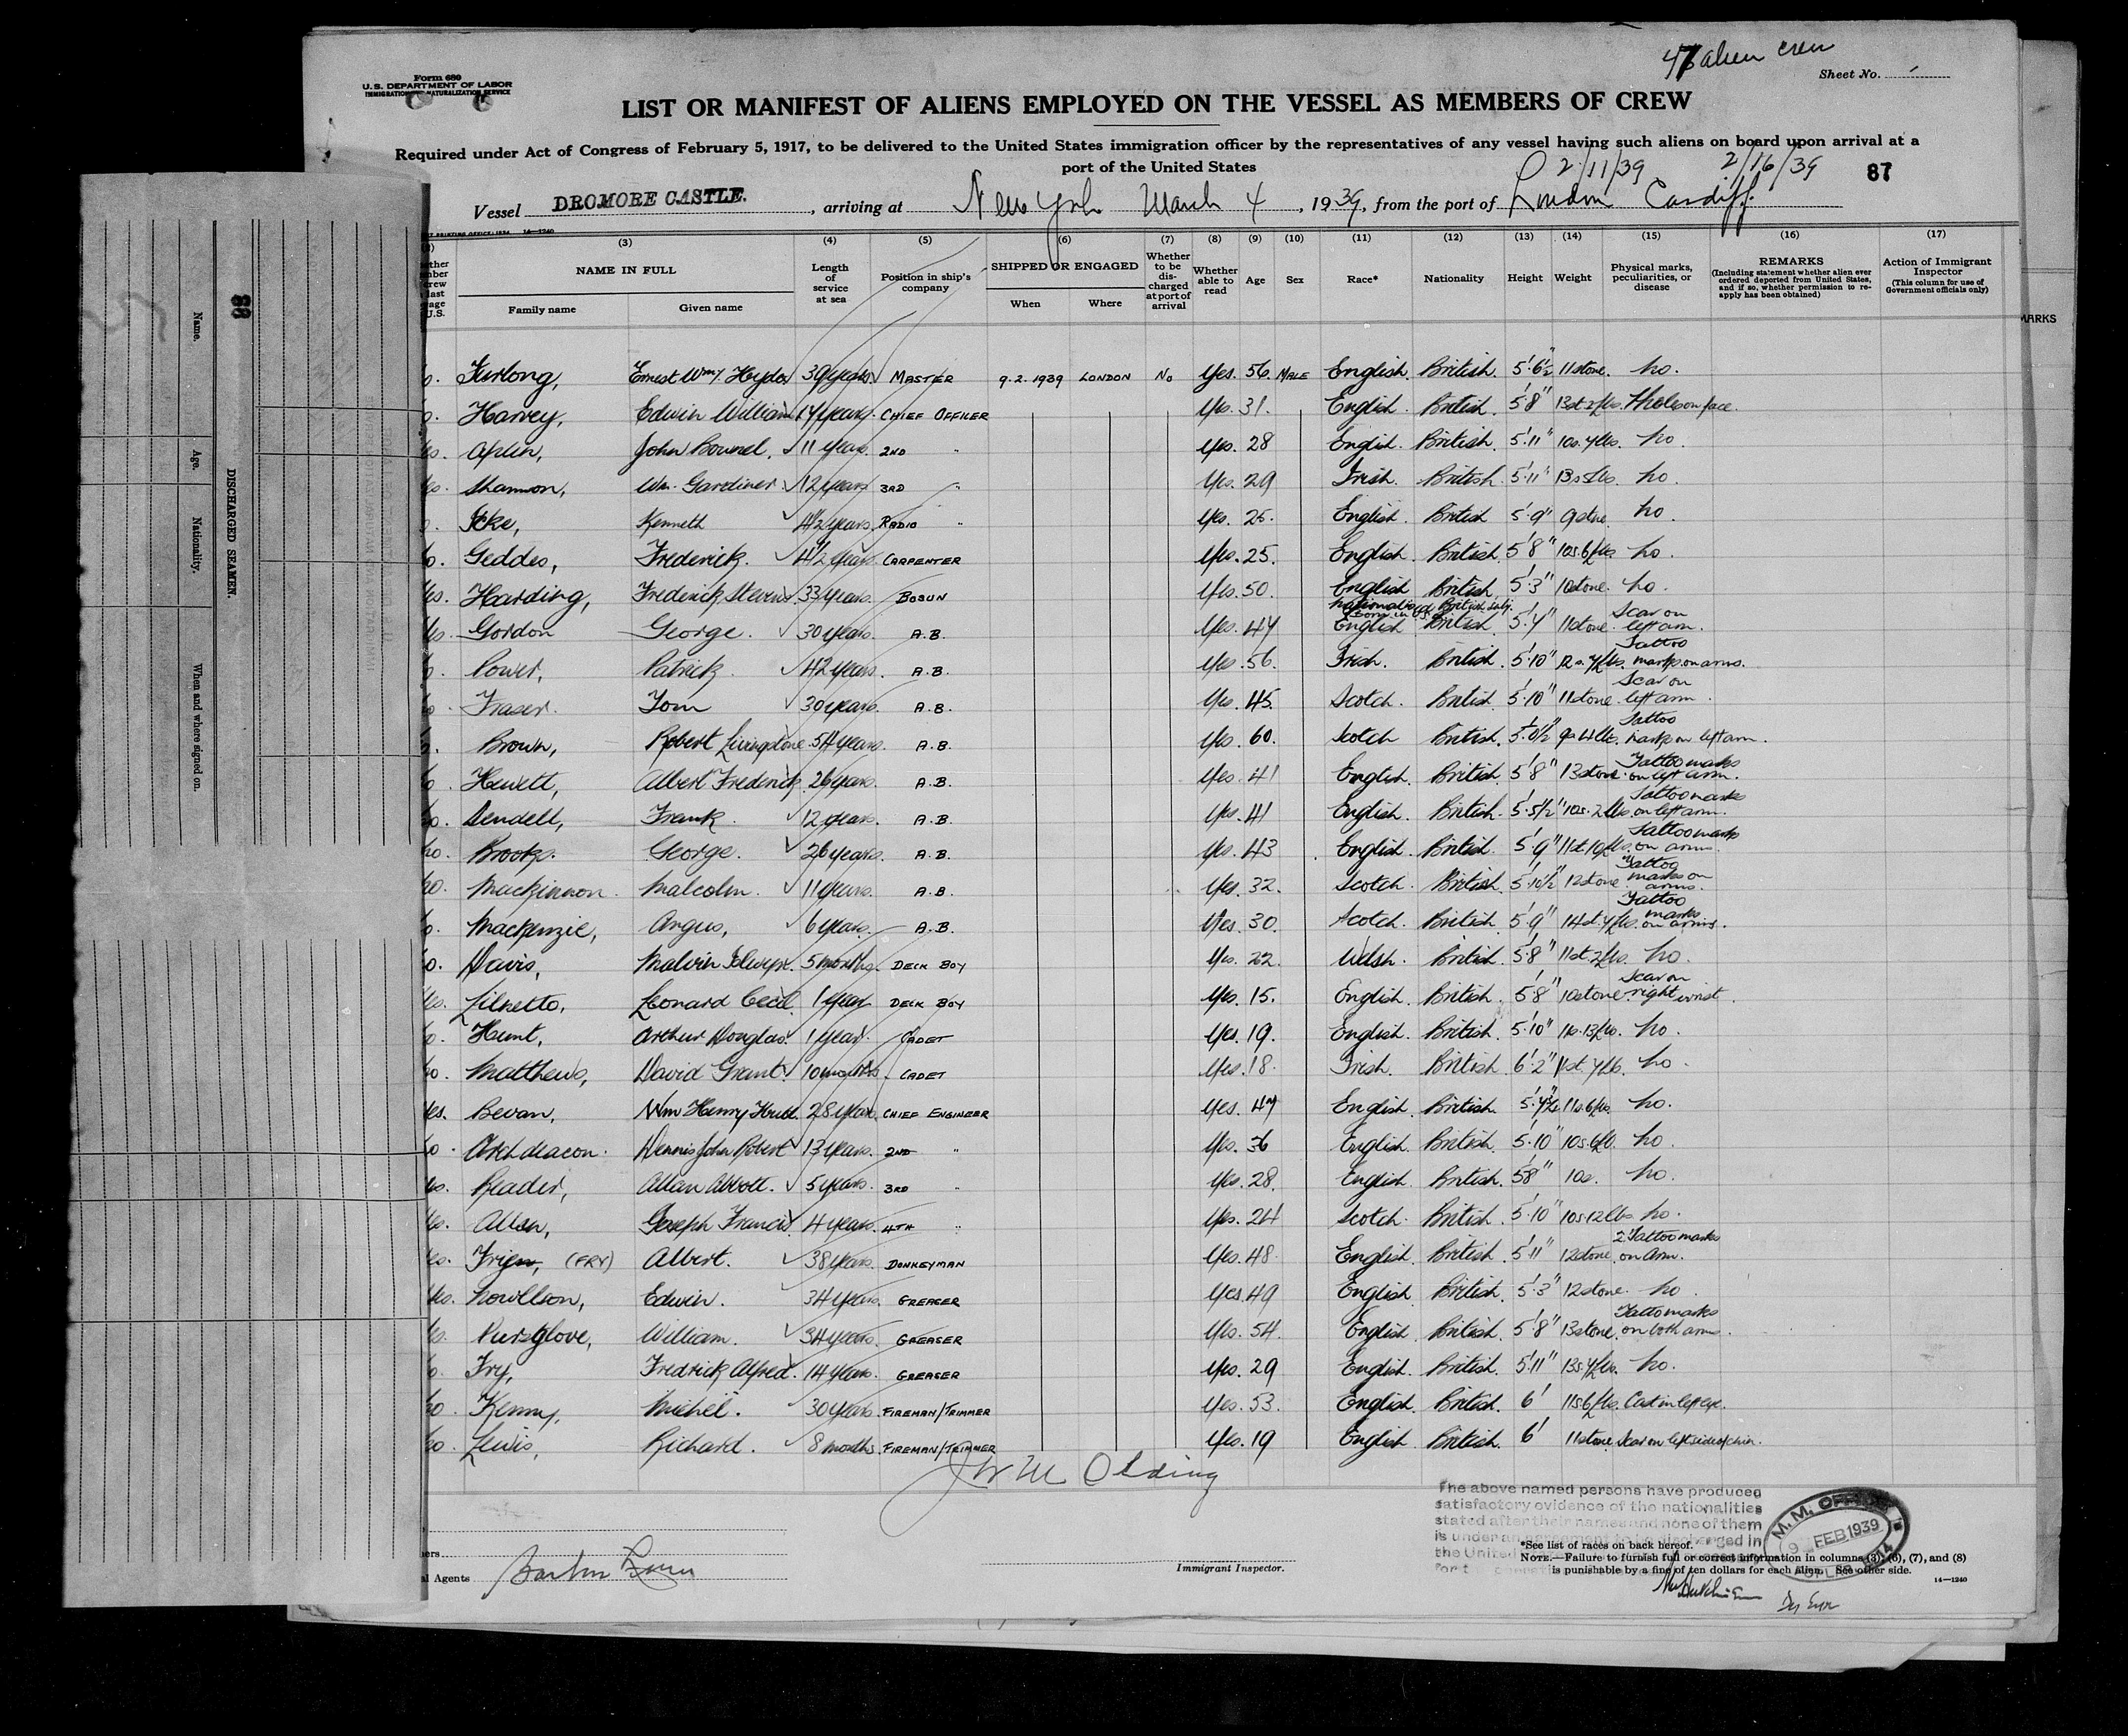 47 alien crew
Form 680
U.S. DEPARTMENT OF LABOR
IMMIGRATION AND NATURALIZATION SERVICE
Sheet No.
LIST OR MANIFEST OF ALIENS EMPLOYED ON THE VESSEL AS MEMBERS OF CREW
Required under Act of Congress of February 5, 1917, to be delivered to the United States immigration officer by the representatives of any vessel having such aliens on board upon arrival at a
port of the United States
2/11/39 2/16/39 87
Vessel DROMORE CASTLE. , arriving at New York March 4 , 1939, from the port of London Cardiff
(3) (4) (5) (6) (7) (8) (9) (10) (11) (12) (13) (14) (15) (16) (17)
NAME IN FULL Length of service at sea Position in ship's company SHIPPED OR ENGAGED Whether to be discharged at port of arrival Whether able to read Age Sex Race* Nationality Height Weight Physical marks, peculiarities, or disease REMARKS (Including statement whether alien ever ordered deported from United States, and if so, whether permission to reapply has been obtained) Action of Immigrant Inspector (This column for use of Government officials only)
Family name Given name When Where
Furlong, Ernest Wm 39 years MASTER 9.2.1939 LONDON No Yes. 56. MALE English. British. 5' 6½ 11 stone. No.
Harvey, Edwin William 17 years. CHIEF OFFICER Yes. 31. English. British. 5'8" on face.
Aplin, John 11 years. 2ND " Yes. 28 English. British. 5'.11" 10s. 7lbs. No.
Shannon, Wm. Gardiner. 12 years 3RD " Yes. 29 Irish. British. 5'.11" 13s 5lbs. No.
Icke, Kenneth 4½ years. RADIO " Yes. 25. English. British 5'.9" 9 stone. No.
Geddes, Frederick. 4½ years. CARPENTER Yes. 25. English. British 5'8" 10s.6lbs No.
Harding, Frederick Stevens. 33 years. BOSUN Yes. 50. English British 5'.3" 10 stone. No.
Gordon George. 30 years. A.B. Yes. 47 English British 5'.7" 11 stone. Scar on left arm.
Power, Patrick 42 years. A.B. Yes. 56. Irish. British. 5'.10" 12s. 7lbs. Tattoo marks on arms.
Fraser. Tom 30 years. A.B. Yes. 45. Scotch. British. 5'.10" 11 stone. Scar on left arm.
Brown, Robert Livingstone. 54 years. A.B. Yes. 60. Scotch British. Tattoo marks on left arm.
Hewett, Albert Frederick. 26 years. A.B. Yes. 41 English. British 5'8" 13 stone. Tattoo marks on left arm.
Sendell, Frank. 12 years. A.B. Yes. 41 English. British. 5'.5½" 10s. 2lbs Tattoo marks on left arm.
Brooks. George. 26 years. A.B. Yes. 43 English. British. 5'9" Tattoo marks on arms.
Mackinnon. Malcolm. 11 years. A.B. Yes. 32. Scotch. British. 5'.10½" 12 stone Tattoo marks on arms.
Mackenzie, Angus, 6 years. A.B. Yes. 30. Scotch. British. 5'9" 14st. 7lbs. Tattoo marks on arms.
Davis, Melvin 5 months. DECK BOY Yes. 22. Welsh. British. 5'8" 11st. 2lbs. No.
Leonard Cecil 1 year DECK BOY Yes. 15. English. British. 5'8" 10 stone. Scar on right wrist.
Hunt, Arthur Douglas. 1 year. CADET Yes. 19. English. British. 5'.10" No.
Matthews, David Grant. 10 months. CADET Yes. 18. Irish. British 6'2" 11st. 7lbs. No.
Bevan, Wm Henry 28 years. CHIEF ENGINEER Yes. 47 English. British. 11s. 6lbs. No.
Archdeacon. Dennis John Robert 13 years. 2ND " Yes. 36 English. British. 5'.10" 10s. 6lb. No.
Reader, Allan Abbott. 5 years. 3RD " Yes. 28. English. British. 5'8" 10s. No.
Allan, Joseph Francis. 4 years. 4TH " Yes. 24 Scotch. British. 5'.10" 10s. 12lbs No.
(FRY) Albert. 38 years. DONKEYMAN Yes. 48. English British. 5'.11" 12 stone. 2 Tattoo marks on Arm.
Nowllson, Edwin. 34 years. GREASER Yes. 49 English British. 5'.3" 12 stone. No.
Pursglove, William. 34 years. GREASER Yes. 54. English. British. 5'8" 13 stone. Tatto marks on both arms.
Fry, Fredrick Alfred. 14 years. GREASER Yes. 29 English. British. 5'11" 13s. 7lbs. No.
Kenny, Michel. 30 years. FIREMAN/TRIMMER Yes. 53. English. British. 6' 11s.6lbs. Cast in left eye.
Lewis, Richard. 8 months. FIREMAN/TRIMMER Yes. 19 English. British. 6' 11 stone. Scar on left side of chin.
Olding
The above named persons have produced
satisfactory evidence of the nationalities
stated after their names and none of them
is under an agreement to be discharged in
the United
M. M. OFFICE
9 FEB 1939
POPLAR E.14
*See list of races on back hereof.
NOTE.—Failure to furnish full or correct information in columns (3), (6), (7), and (8)
is punishable by a fine of ten dollars for each alien. See other side.
14—1240
Agents
Immigrant Inspector.
88
DISCHARGED SEAMEN.
Name.
Age.
Nationality.
When and where signed on.